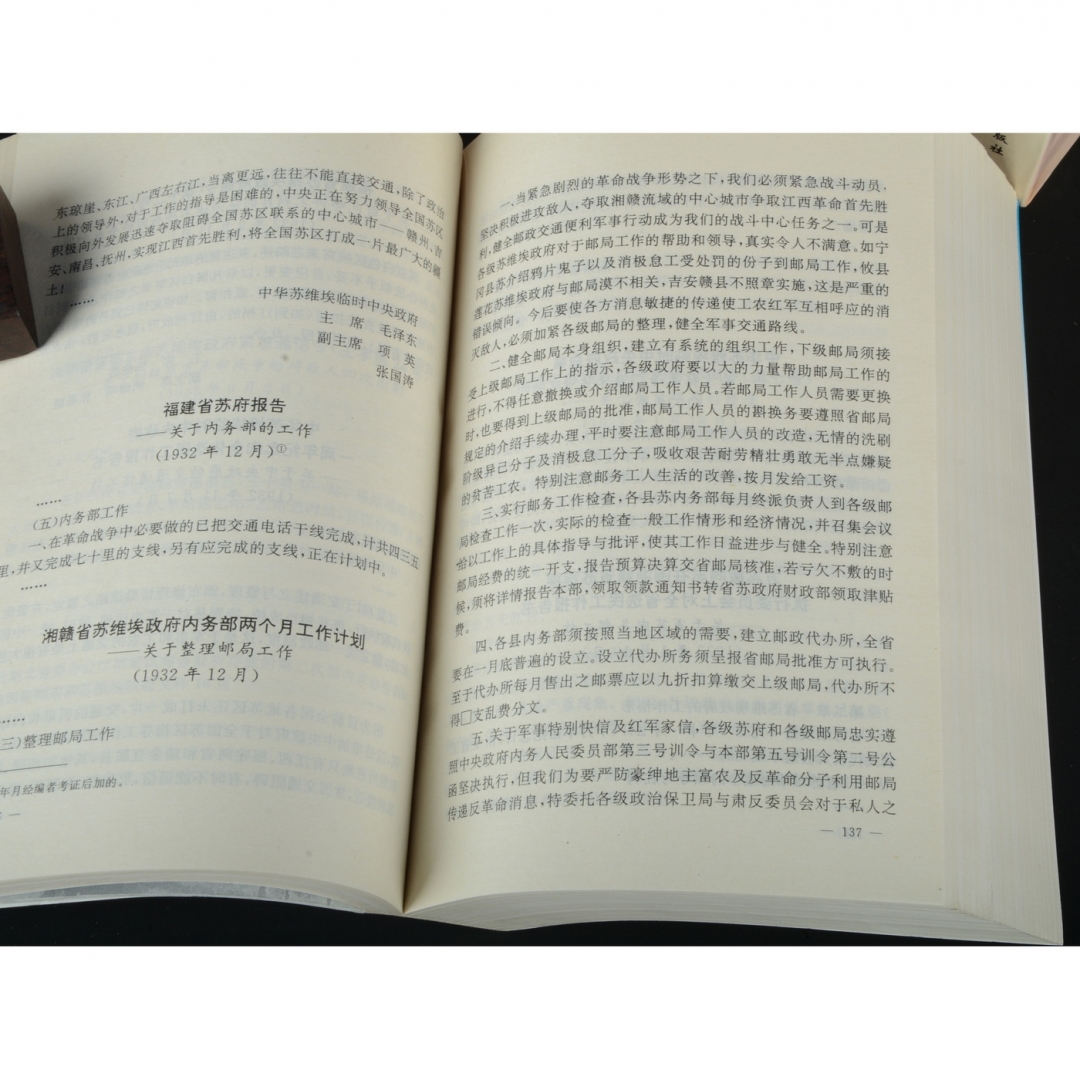 东琼崖、东江、广西左右江,当离更远,往往不能直接交通,除了政治
上的领导外,对于工作的指导是困难的,中央正在努力领导全国苏区
积极向外发展迅速夺取阻碍全国苏区联系的中心城市——赣州、吉
安、南昌、抚州,实现江西首先胜利,将全国苏区打成一片最广大的疆
土!
……
中华苏维埃临时中央政府
主 席 毛泽东
副主席 项 英
张国涛
福建省苏府报告
——关于内务部的工作
(1932年12月)①
……
(五)内务部工作
一、在革命战争中必要做的已把交通电话干线完成,计共四三五
里,并又完成七十里的支线,另有应完成的支线,正在计划中。
……
湘赣省苏维埃政府内务部两个月工作计划
——关于整理邮局工作
(1932年12月)
……
三)整理邮局工作
年月经编者考证后加的。
一、当紧急剧烈的革命战争形势之下,我们必须紧急战斗动员,
坚决积极进攻敌人,夺取湘赣流域的中心城市争取江西革命首先胜
利,健全邮政交通便利军事行动成为我们的战斗中心任务之一。可是
各级苏维埃政府对于邮局工作的帮助和领导,真实令人不满意。如宁
冈县苏介绍鸦片鬼子以及消极怠工受处罚的份子到邮局工作,攸县
莲花苏维埃政府与邮局漠不相关,吉安赣县不照章实施,这是严重的
错误倾向。今后要使各方消息敏捷的传递使工农红军互相呼应的消
灭敌人,必须加紧各级邮局的整理,健全军事交通路线。
二、健全邮局本身组织,建立有系统的组织工作,下级邮局须接
受上级邮局工作上的指示,各级政府要以大的力量帮助邮局工作的
进行,不得任意撤换或介绍邮局工作人员。若邮局工作人员需要更换
时,也要得到上级邮局的批准,邮局工作人员的斟换务要遵照省邮局
规定的介绍手续办理,平时要注意邮局工作人员的改造,无情的洗刷
阶级异己分子及消极怠工分子,吸收艰苦耐劳精壮勇敢无半点嫌疑
的贫苦工农。特别注意邮务工人生活的改善,按月发给工资。
三、实行邮务工作检查,各县苏内务部每月终派负责人到各级邮
局检查工作一次,实际的检查一般工作情形和经济情况,并召集会议
恰以工作上的具体指导与批评,使其工作日益进步与健全。特别注意
邮局经费的统一开支,报告预算决算交省邮局核准,若亏欠不敷的时
候,须将详情报告本部,领取领款通知书转省苏政府财政部领取津贴
费。
四、各县内务部须按照当地区域的需要,建立邮政代办所,全省
要在一月底普遍的设立。设立代办所务须呈报省邮局批准方可执行。
至于代办所每月售出之邮票应以九折扣算缴交上级邮局,代办所不
得□支乱费分文。
五、关于军事特别快信及红军家信,各级苏府和各级邮局忠实遵
照中央政府内务人民委员部第三号训令与本部第五号训令第二号公
函坚决执行,但我们为要严防豪绅地主富农及反革命分子利用邮局
传递反革命消息,特委托各级政治保卫局与肃反委员会对于私人之
— 137 —
版社